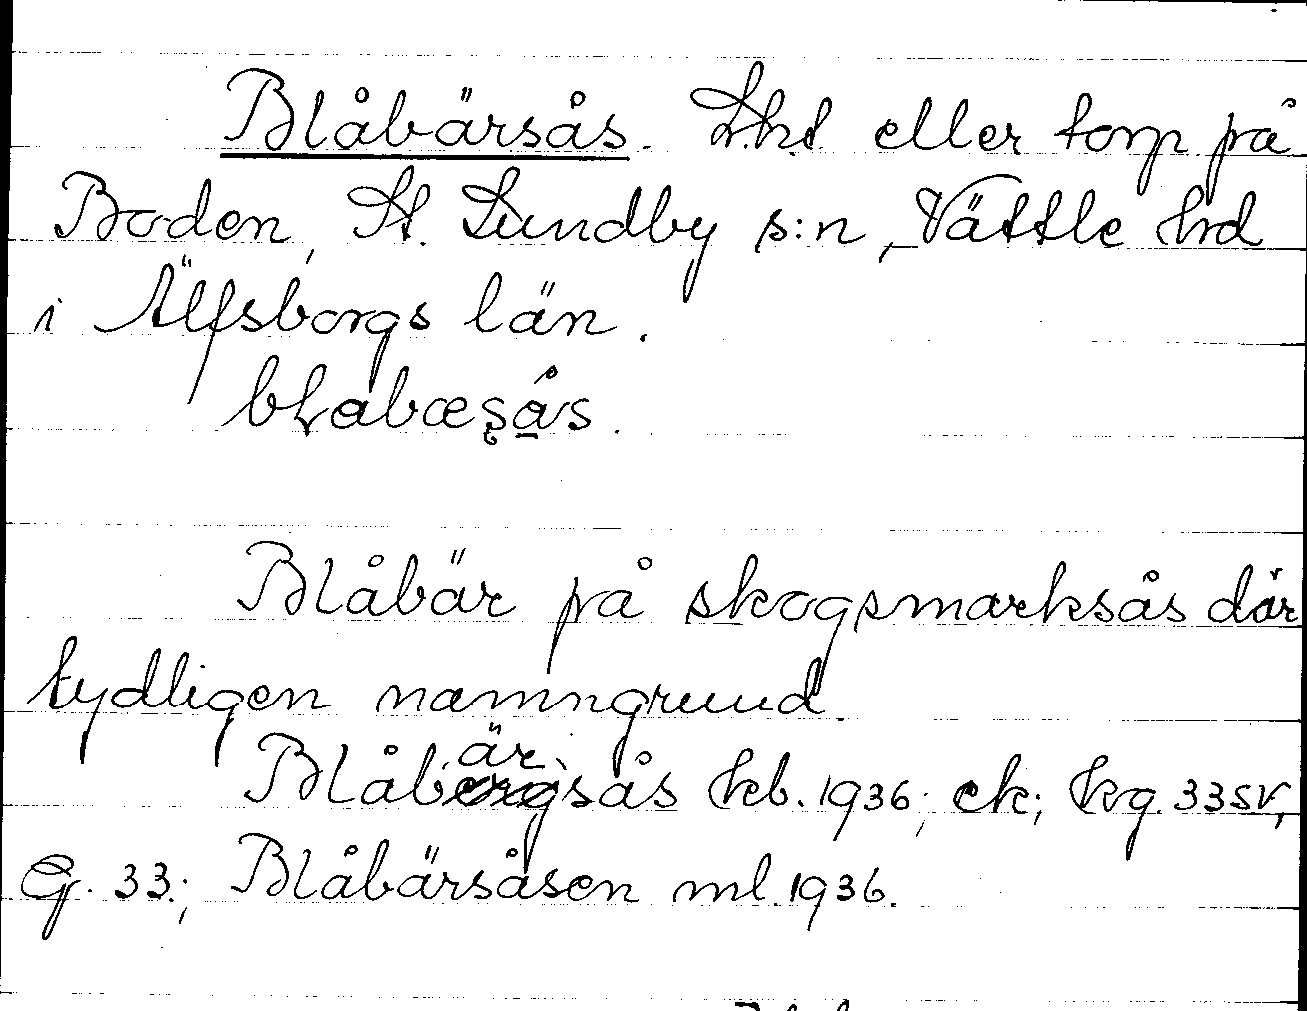 Blåbärsås. Lht eller torp på
Boden, St. Lundby s:n, Vättle hrd
i Älfsborgs län.
bLabæşås.
Blåbär på skogsmarksås där
tydligen namngrund.
Blåbärsås kb. 1936; ek; krg. 33SV,
G. 33.; Blåbärsåsen ml. 1936.